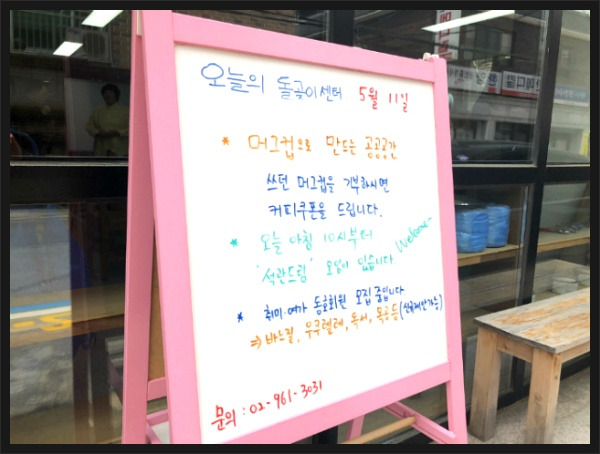 오늘의 돌곶이센터 5월 11일
* 머그컵으로 만드는 공공공간
쓰던 머그컵을 기부하시면
커피쿠폰을 드립니다.
* 오늘 아침 10시부터
'석관드림' 모임이 있습니다
Welcome~
* 취미·여가 동호회원 모집 중입니다
⇒ 바느질, 우쿠렐레, 독서, 목공 등 (신규제안가능)
문의 : 02-961-3031